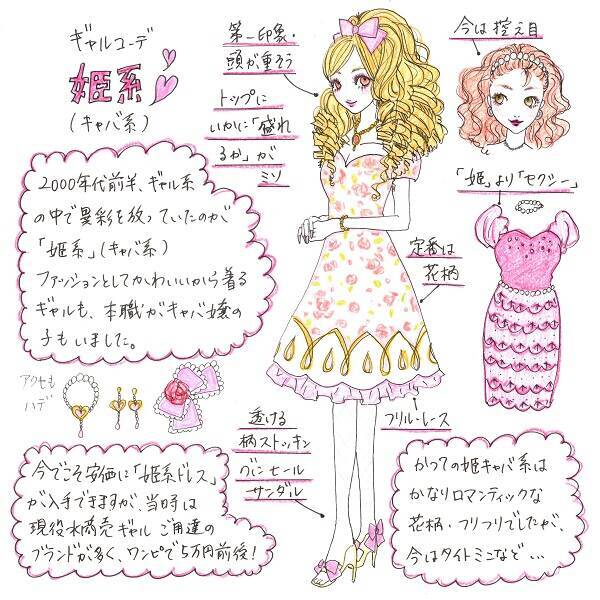 ギャルコーデ
姫系
(キャバ系)
第一印象・
頭が重そう
トップに
いかに「盛れ
るか」が
ミソ
今は控え目
2000年代前半、ギャル系
の中で異彩を放っていたのが
「姫系」(キャバ系)
ファッションとしてかわいいから着る
ギャルも、本職がキャバ嬢の
子もいました。
「姫」より「セクシー」
定番は
花柄
アクセも
ハデ
透ける
柄ストッキン
グにヒール
サンダル
フリル・レース
今でこそ安価に「姫系ドレス」
が入手できますが、当時は
現役水商売ギャルご用達の
ブランドが多く、ワンピで5万円前後!
かつての姫キャバ系は
かなりロマンティックな
花柄・フリフリでしたが、
今はタイトミニなど…